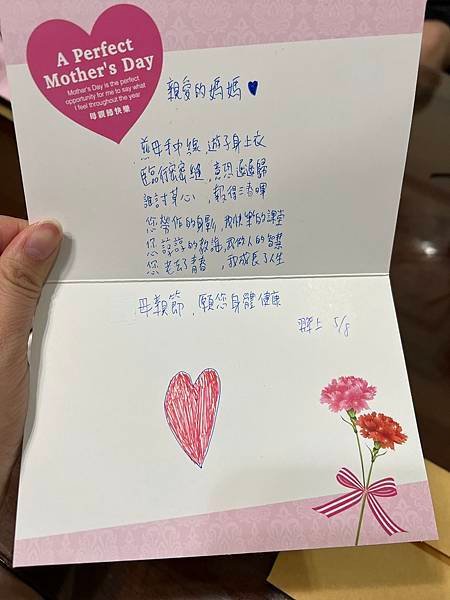 A Perfect
Mother's Day
Mother's Day is the perfect
opportunity for me to say what
I feel throughout the year
母親節快樂
親愛的媽媽♥
慈母手中線,遊子身上衣
臨行密密縫,意恐遲遲歸
誰討草心,報得三春暉
您勞作的身影,我快樂的課堂
您諄諄的教誨,我做人的智慧
您老去了青春,我成長了人生
母親節,願您身體健康
上 5/8